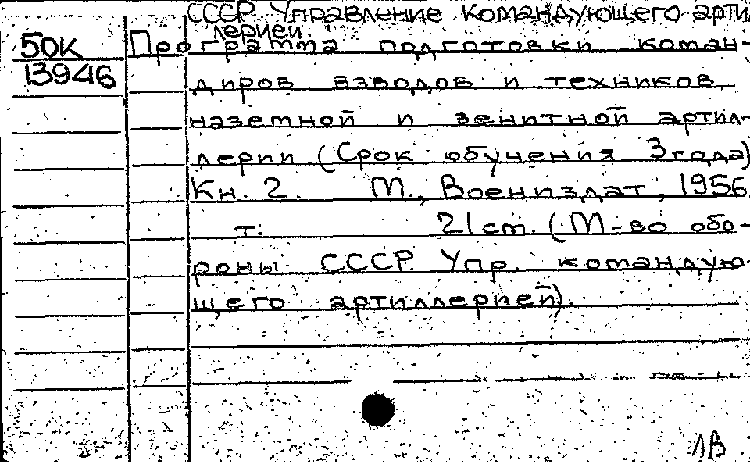 СССР Управление Командующего арти
лерией.
50к
13946
Программа подготовки коман-
диров взводов и техников
наземной и зенитной артил-
лерии (Срок обучения 3 года)
Кн. 2. М., Воениздат, 1956
т. 21 см. (М-во обо-
роны СССР Упр. командую-
щего артиллерией).
ЛВ